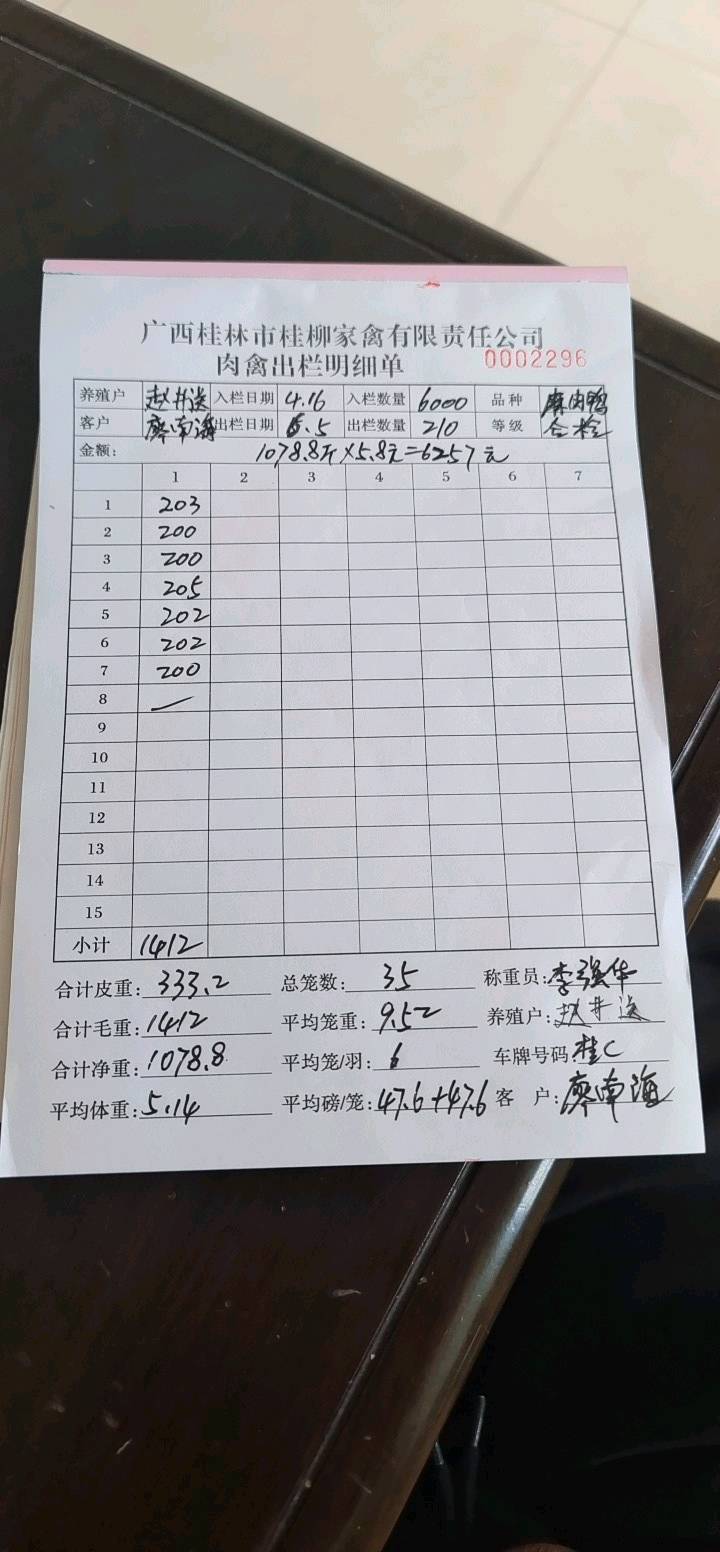 广西桂林市桂柳家禽有限责任公司
肉禽出栏明细单 0002296
养殖户 赵井送 入栏日期 4.16 入栏数量 6000 品种 麻肉鸭
客户 廖南海 出栏日期 6.5 出栏数量 210 等级 合检
金额： 1078.8斤×5.8元=6257元
1 2 3 4 5 6 7
1 203
2 200
3 200
4 205
5 202
6 202
7 200
8
9
10
11
12
13
14
15
小计 1412
合计皮重：333.2 总笼数：35 称重员：李强华
合计毛重：1412 平均笼重：9.52 养殖户：赵井送
合计净重：1078.8 平均笼/羽：6 车牌号码 桂C
平均体重：5.14 平均磅/笼：47.6+47.6 客 户：廖南海